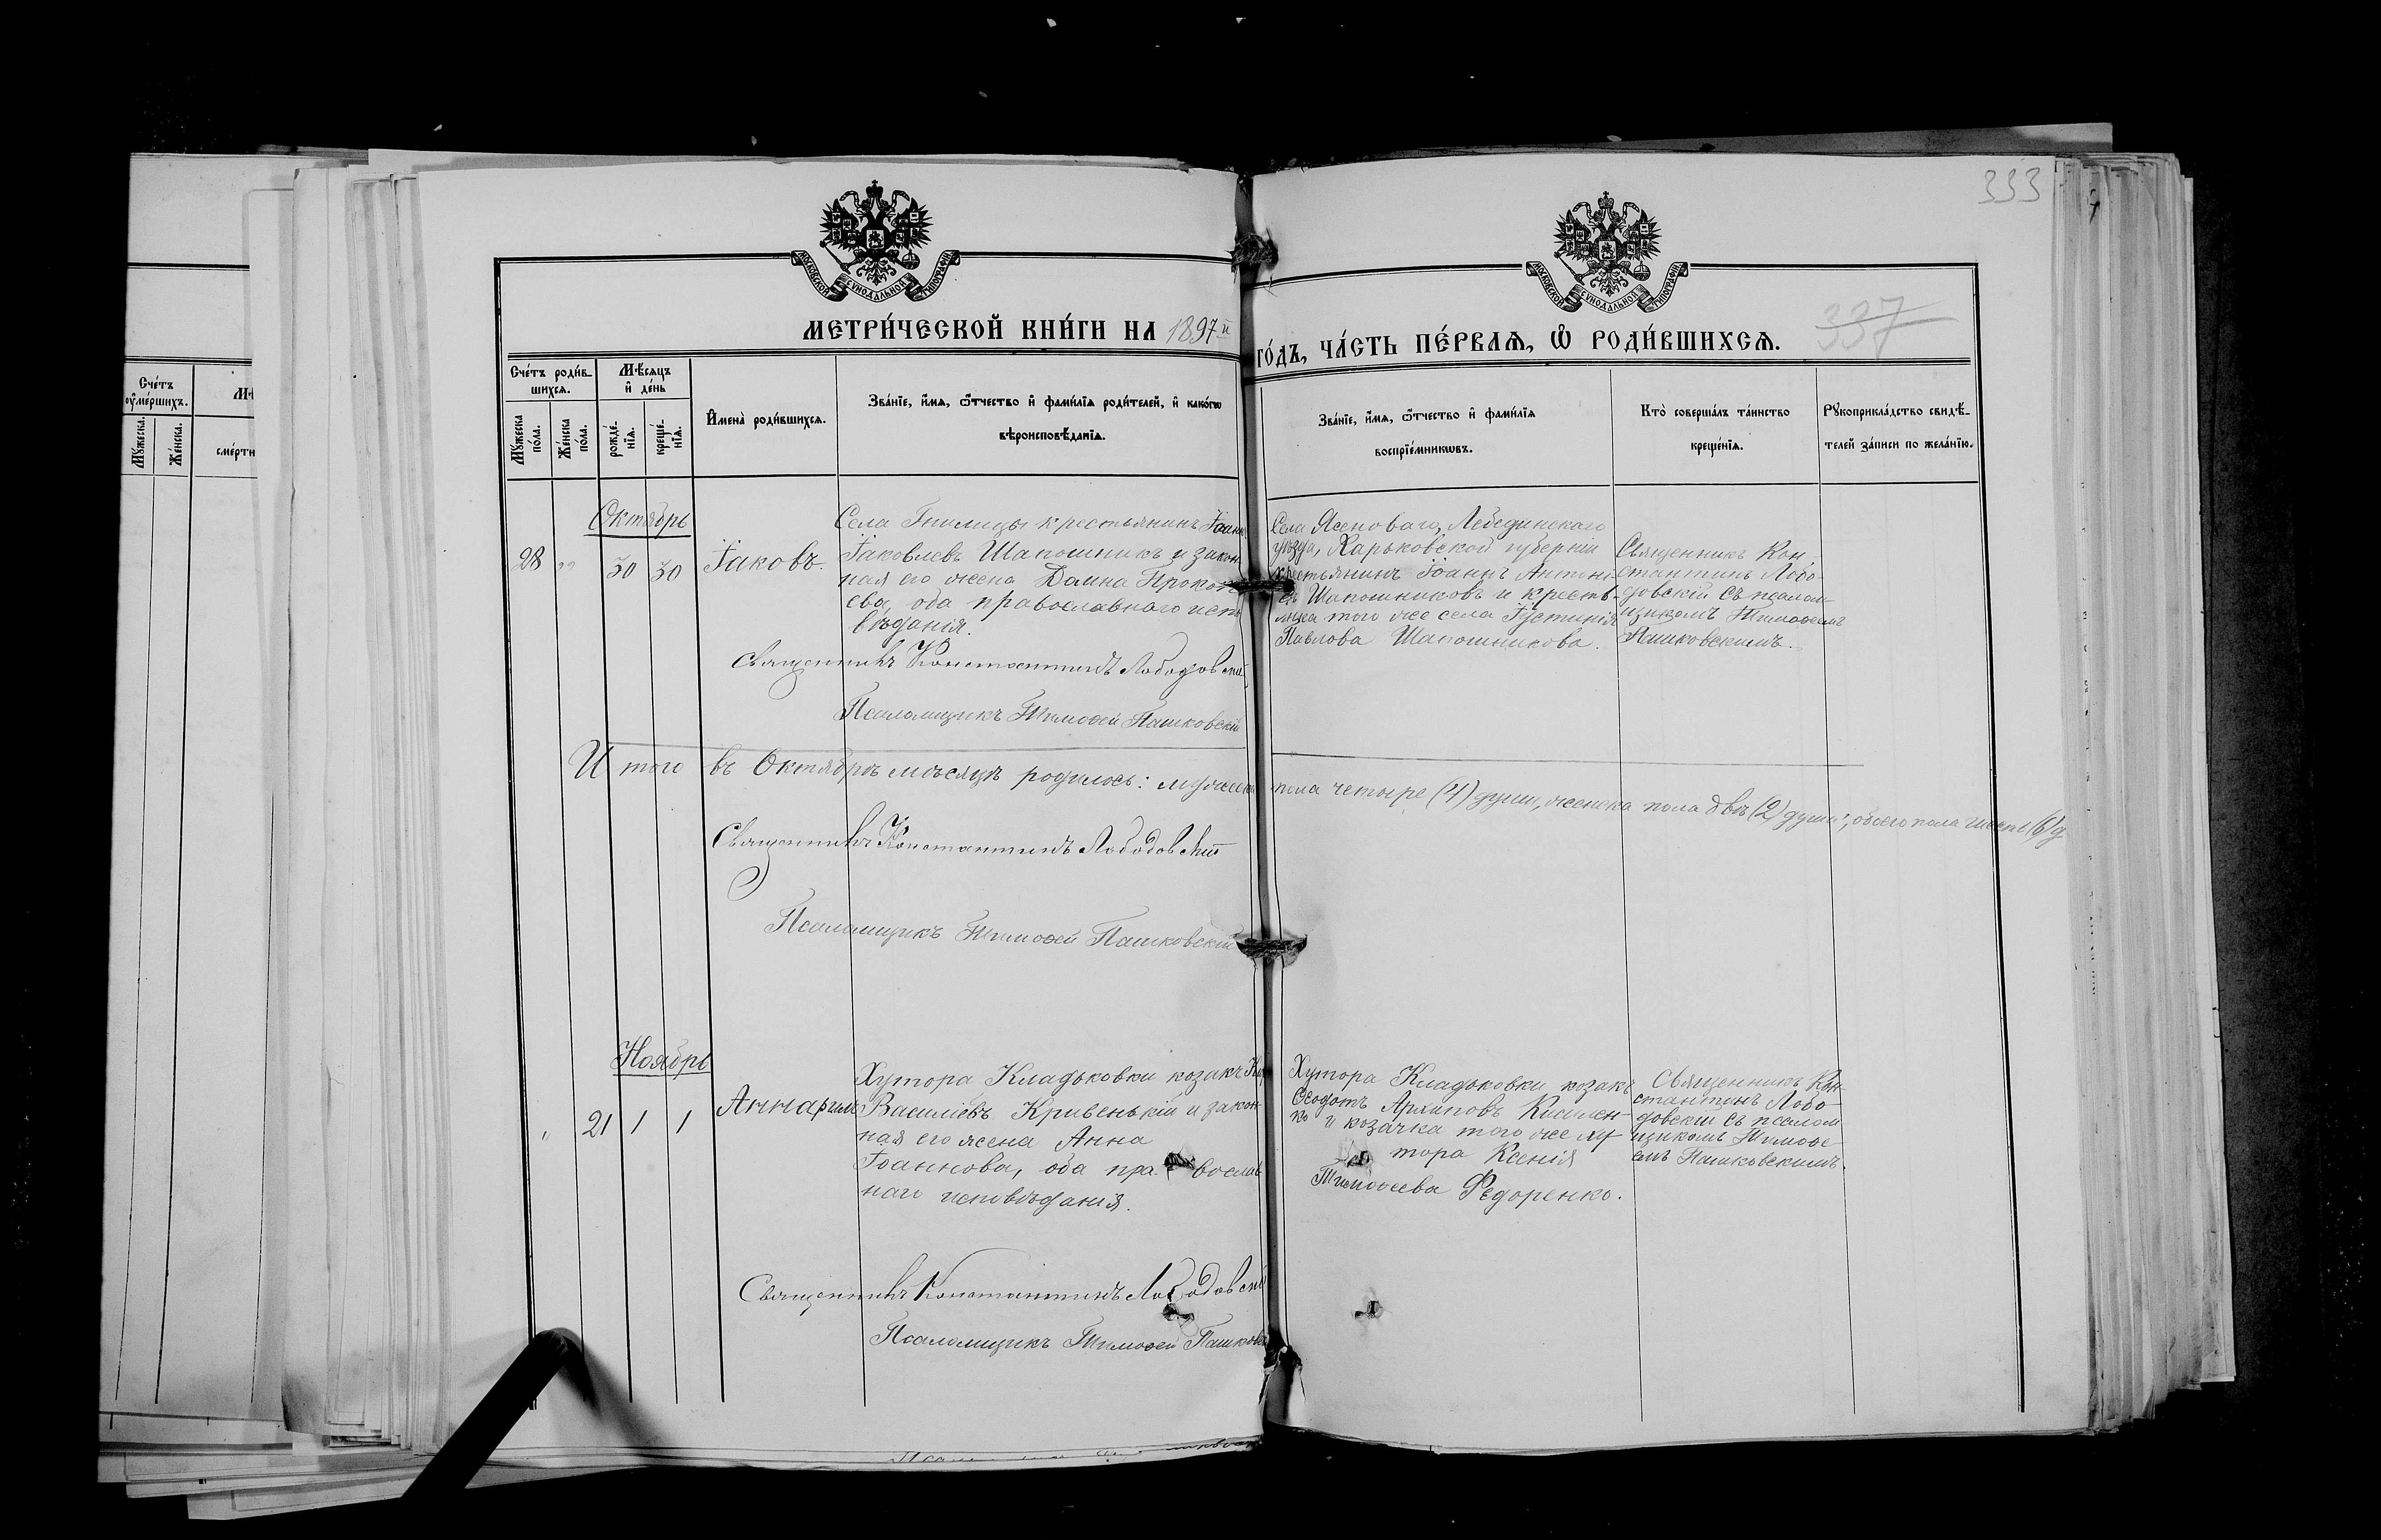 333
МОСКОВСКОЙ СѴНОДАЛЬНОЙ ТИПОГРАФІИ
МОСКОВСКОЙ СѴНОДАЛЬНОЙ ТИПОГРАФІИ
337
МЕТРИ́ЧЕСКОЙ КНИ́ГИ НА 1897 й
ГО́ДЪ, ЧА́СТЬ ПЕ́РВАѦ, Ѡ҆ РОДИ́ВШИХСѦ.
Счéтъ
ᲂу҆мéршихъ.
Мꙋ́жеска.
Же́нска.
смéрти
Счéтъ роди́в-
шихсѧ.
Мꙋ́жеска по́ла.
Же́нска по́ла.
Мѣ́сѧцъ
и҆ де́нь
рожде́нїѧ.
креще́нїѧ.
И҆мена̀ роди́вшихсѧ.
Зва́нїе, и҆́мѧ, ѻ҆́тчество и҆ фамѝлїѧ роди́телей, и҆ како́гѡ
вѣроисповѣ́данїѧ.
Зва́нїе, и҆́мѧ, ѻ҆́тчество и҆ фамѝлїѧ
воспрїе́мникѡвъ.
Кто̀ соверша́лъ та́инство
креще́нїѧ.
Рꙋкоприкла́дство свидѣ́-
телей за́писи по жела́нїю.
Октябрь
28 „ 30 30
Іаковъ.
Села Гнилицы крестьянинъ Іоаннъ
Іаковлевъ Шапошникъ и закон-
ная его жена Домна Прокоп
ева, оба православнаго испо
вѣданія.
Села Ясеноваго, Лебединскаго
уѣзда, Харьковской губерніи
крестьянинъ Іоаннъ Антоні-
евъ Шапошниковъ и кресть-
янка того же села Іустинія
Павлова Шапошникова.
Священникъ Кон-
стантинъ Лобо-
довскій съ псалом-
щикомъ Тимоѳеемъ
Пашковскимъ.
Священникъ Константинъ Лободовскій
Псаломщикъ Тимоѳей Пашковскій
Итого въ Октябрѣ мѣсяцѣ родилось: мужеска пола четыре (4) души, женска пола двѣ (2) души, обоего пола шесть (6) д.
Священникъ Константинъ Лободовскій
Псаломщикъ Тимоѳей Пашковскій
Ноябрь
„ 21 1 1
Анна
Хутора Кладьковки козакъ
Василіевъ Кривенькій и закон-
ная его жена Анна
Іоаннова, оба пра вослав
наго исповѣданія.
Хутора Кладьковки козакъ
Ѳеодотъ Архиповъ Кисилен-
ко и козачка того же ху
тора Ксенія
Тимоѳеева Ѳедоренко.
Священникъ Кон-
стантинъ Лобо-
довскій съ псалом
щикомъ Тимоѳе-
емъ Пашковскимъ.
Священникъ Константинъ Лободовскій
Псаломщикъ Тимоѳей Пашковск